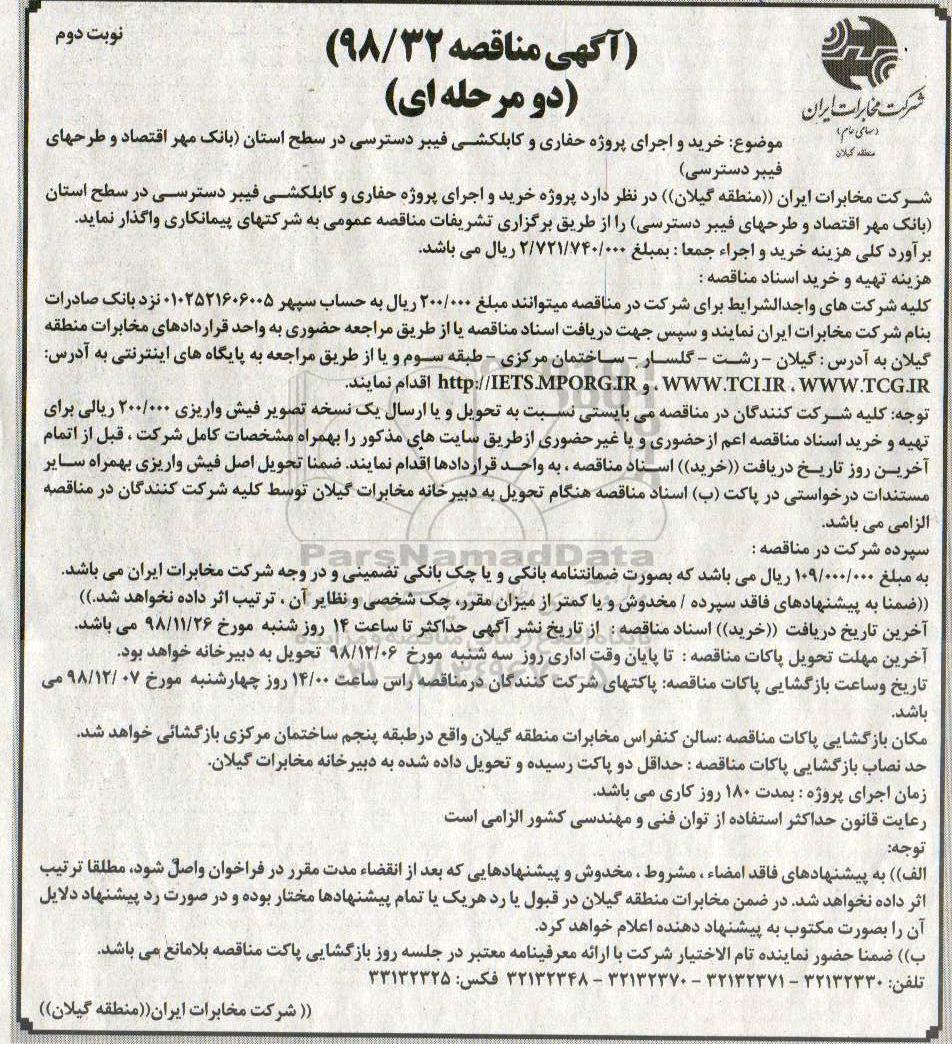 نوبت دوم
(آگهی مناقصه ۹۸/۳۲)
(دو مرحله ای)
شرکت مخابرات ایران
(سهامی عام)
منطقه گیلان
موضوع: خرید و اجرای پروژه حفاری و کابلکشی فیبر دسترسی در سطح استان (بانک مهر اقتصاد و طرحهای
فیبر دسترسی)
شرکت مخابرات ایران ((منطقه گیلان)) در نظر دارد پروژه خرید و اجرای پروژه حفاری و کابلکشی فیبر دسترسی در سطح استان
(بانک مهر اقتصاد و طرحهای فیبر دسترسی) را از طریق برگزاری تشریفات مناقصه عمومی به شرکتهای پیمانکاری واگذار نماید.
برآورد کلی هزینه خرید و اجراء جمعا : بمبلغ ۲/۷۲۱/۷۴۰/۰۰۰ ریال می باشد.
هزینه تهیه و خرید اسناد مناقصه :
کلیه شرکت های واجدالشرایط برای شرکت در مناقصه میتوانند مبلغ ۲۰۰/۰۰۰ ریال به حساب سپهر ۰۱۰۲۵۲۱۶۰۶۰۰۵ نزد بانک صادرات
بنام شرکت مخابرات ایران نمایند و سپس جهت دریافت اسناد مناقصه یا از طریق مراجعه حضوری به واحد قراردادهای مخابرات منطقه
گیلان به آدرس : گیلان – رشت – گلسار – ساختمان مرکزی – طبقه سوم و یا از طریق مراجعه به پایگاه های اینترنتی به آدرس:
WWW.TCI.IR ، WWW.TCG.IR ، و http://IETS.MPORG.IR اقدام نمایند.
توجه: کلیه شرکت کنندگان در مناقصه می بایستی نسبت به تحویل و یا ارسال یک نسخه تصویر فیش واریزی ۲۰۰/۰۰۰ ریالی برای
تهیه و خرید اسناد مناقصه اعم ازحضوری و یا غیرحضوری ازطریق سایت های مذکور را بهمراه مشخصات کامل شرکت ، قبل از اتمام
آخرین روز تاریخ دریافت ((خرید)) اسناد مناقصه ، به واحد قراردادها اقدام نمایند. ضمنا تحویل اصل فیش واریزی بهمراه سایر
مستندات درخواستی در پاکت (ب) اسناد مناقصه هنگام تحویل به دبیرخانه مخابرات گیلان توسط کلیه شرکت کنندگان در مناقصه
الزامی می باشد.
سپرده شرکت در مناقصه :
به مبلغ ۱۰۹/۰۰۰/۰۰۰ ریال می باشد که بصورت ضمانتنامه بانکی و یا چک بانکی تضمینی و در وجه شرکت مخابرات ایران می باشد.
((ضمنا به پیشنهادهای فاقد سپرده / مخدوش و یا کمتر از میزان مقرر، چک شخصی و نظایر آن ، ترتیب اثر داده نخواهد شد.))
آخرین تاریخ دریافت ((خرید)) اسناد مناقصه : از تاریخ نشر آگهی حداکثر تا ساعت ۱۴ روز شنبه مورخ ۹۸/۱۱/۲۶ می باشد.
آخرین مهلت تحویل پاکات مناقصه : تا پایان وقت اداری روز سه شنبه مورخ ۹۸/۱۲/۰۶ تحویل به دبیرخانه خواهد بود.
تاریخ وساعت بازگشایی پاکات مناقصه: پاکتهای شرکت کنندگان درمناقصه راس ساعت ۱۴/۰۰ روز چهارشنبه مورخ ۹۸/۱۲/۰۷ می
باشد.
مکان بازگشایی پاکات مناقصه :سالن کنفراس مخابرات منطقه گیلان واقع درطبقه پنجم ساختمان مرکزی بازگشائی خواهد شد.
حد نصاب بازگشایی پاکات مناقصه : حداقل دو پاکت رسیده و تحویل داده شده به دبیرخانه مخابرات گیلان.
زمان اجرای پروژه : بمدت ۱۸۰ روز کاری می باشد.
رعایت قانون حداکثر استفاده از توان فنی و مهندسی کشور الزامی است
توجه:
الف)) به پیشنهادهای فاقد امضاء ، مشروط ، مخدوش و پیشنهادهایی که بعد از انقضاء مدت مقرر در فراخوان واصل شود، مطلقا ترتیب
اثر داده نخواهد شد. در ضمن مخابرات منطقه گیلان در قبول یا رد هریک یا تمام پیشنهادها مختار بوده و در صورت رد پیشنهاد دلایل
آن را بصورت مکتوب به پیشنهاد دهنده اعلام خواهد کرد.
ب)) ضمنا حضور نماینده تام الاختیار شرکت با ارائه معرفینامه معتبر در جلسه روز بازگشایی پاکت مناقصه بلامانع می باشد.
تلفن: ۳۲۱۳۲۳۳۰ – ۳۲۱۳۲۳۷۱ – ۳۲۱۳۲۳۷۰ – ۳۲۱۳۲۳۴۸ فکس: ۳۳۱۳۲۳۲۵
(( شرکت مخابرات ایران((منطقه گیلان))
ParsNamadData